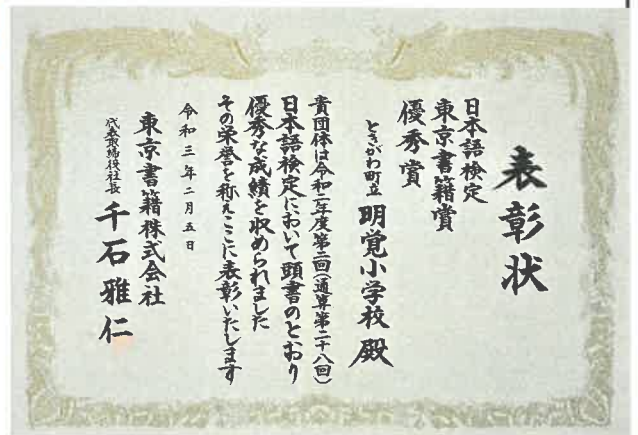 表彰状
日本語検定
東京書籍賞
優秀賞
ときがわ町立 明覚小学校 殿
貴団体は令和二年度第二回(通算第二十八回)
日本語検定において頭書のとおり
優秀な成績を収められました
その栄誉を称えここに表彰いたします
令和三年二月五日
東京書籍株式会社
代表取締役社長 千石雅仁